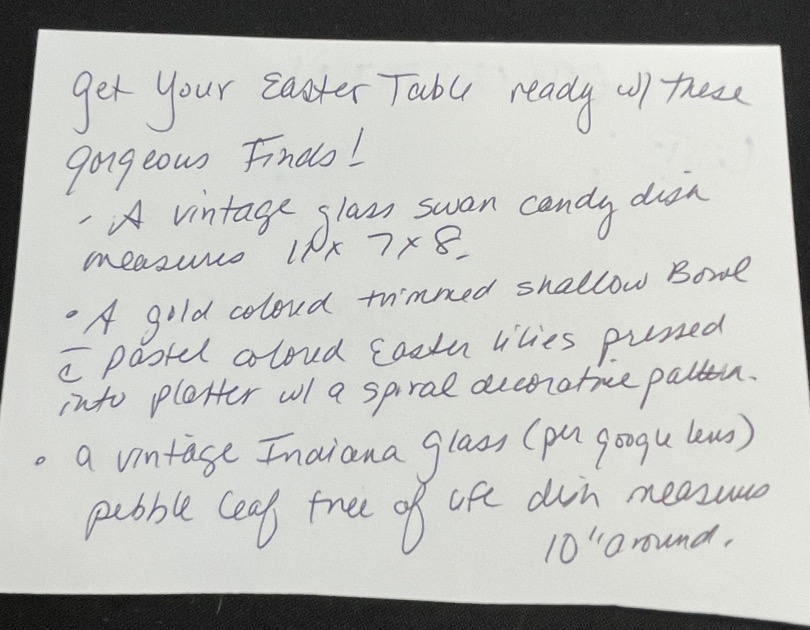 get Your Easter Table ready w/ these
gorgeous Finds!
- A vintage glass swan candy dish
measures 10 x 7 x 8.
• A gold colored trimmed shallow Bowl
c̄ pastel colored Easter lilies pressed
into platter w/ a spiral decorative pattern.
• a vintage Indiana Glass (per google lens)
pebble leaf tree of life dish measures
10" around.